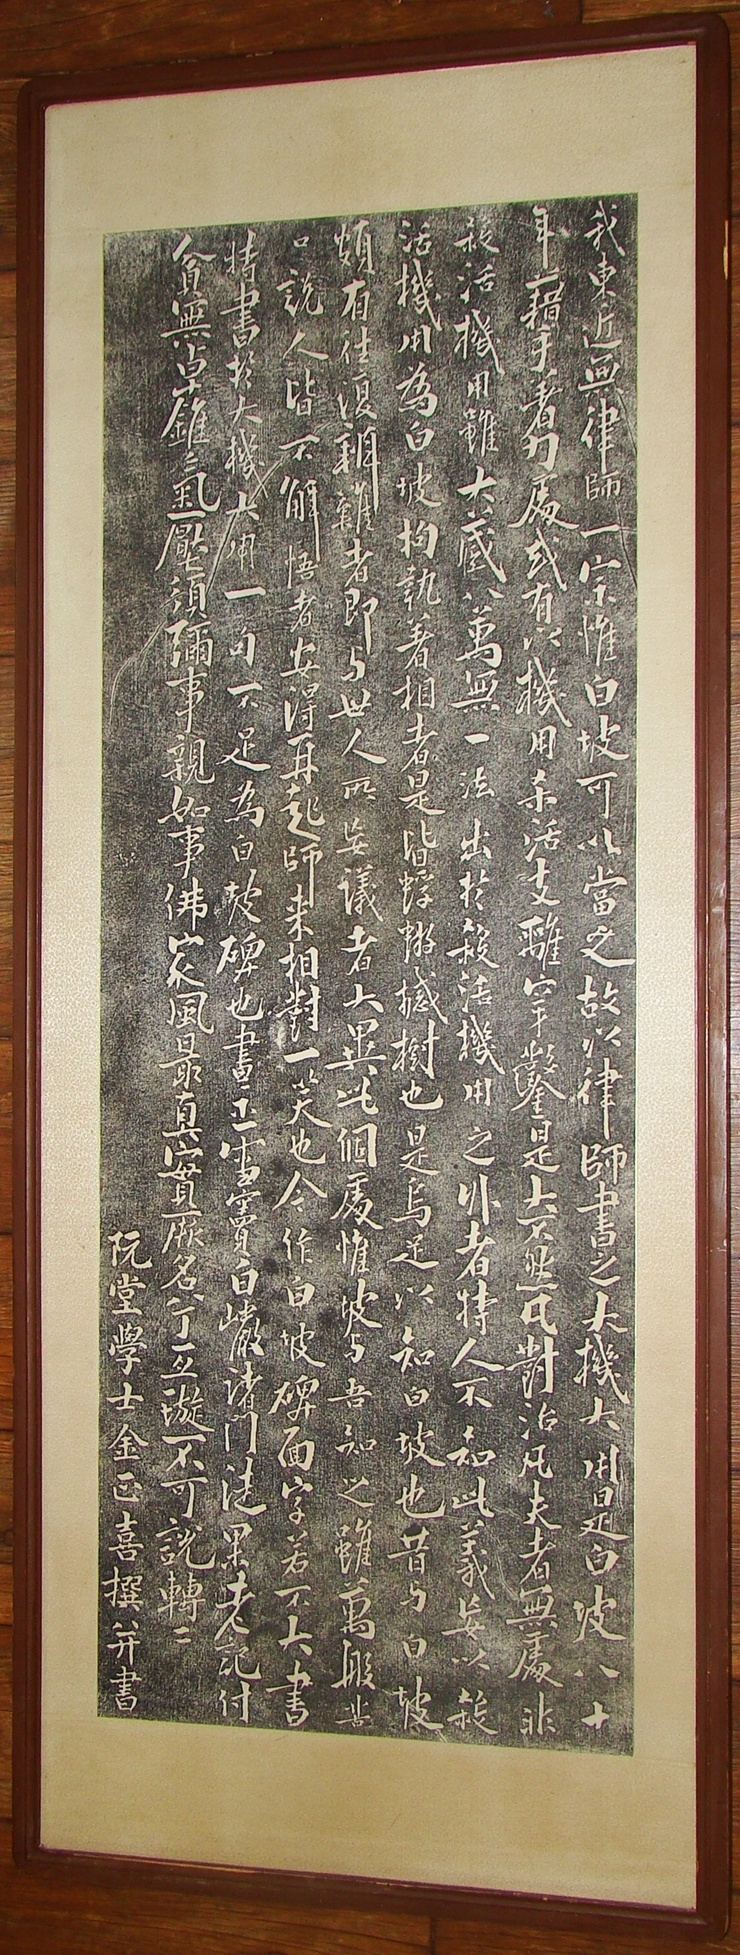 我東近無律師一宗惟白坡可以當之故以律師書之大機大用是白坡八十
年藉手着力處或有以機用杀活支離穿鑿是大不然凡對治凡夫者無處非
殺活機用雖大藏八萬無一法出於殺活機用之外者特人不知此義妄以殺
活機用為白坡拘執着相者是皆蜉蝣撼樹也是烏足以知白坡也昔與白坡
頗有往復辨難者即與世人所妄議者大異此個處惟坡與吾知之雖萬般苦
口說人皆不解悟者安得再起師來相對一笑也今作白坡碑面字若不大書
特書於大機大用一句不足為白坡碑也書示雪竇白巖諸門徒果老記付
貧無卓錐氣壓須彌事親如事佛家風最真實厥名兮亘璇不可說轉〻
阮堂學士金正喜撰并書